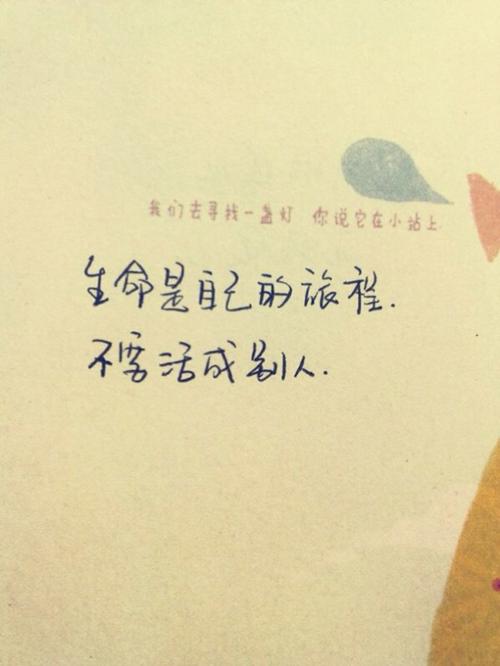 我们去寻找一盏灯 你说它在小站上.
生命是自己的旅程.
不要活成别人.